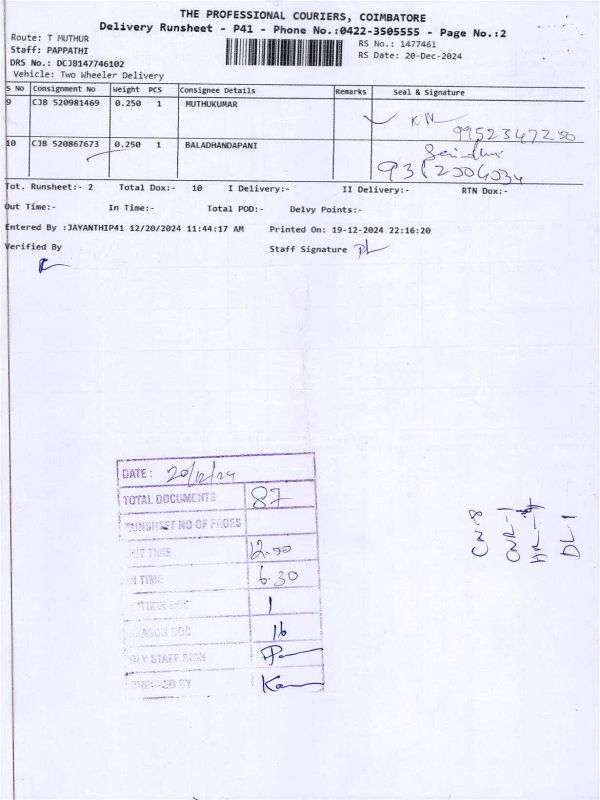 THE PROFESSIONAL COURIERS, COIMBATORE
Delivery Runsheet - P41 - Phone No.:0422-3505555 - Page No.:2
Route: T MUTHUR
RS No.: 1477461
Staff: PAPPATHI
RS Date: 20-Dec-2024
DRS No.: DCJB147746102
Vehicle: Two Wheeler Delivery
S No Consignment No Weight PCS Consignee Details Remarks Seal & Signature
9 CJB 520981469 0.250 1 MUTHUKUMAR
9952347250
10 CJB 520867673 0.250 1 BALADHANDAPANI
Tot. Runsheet:- 2 Total Dox:- 10 I Delivery:- II Delivery:- RTN Dox:-
Out Time:- In Time:- Total POD:- Delvy Points:-
Entered By :JAYANTHIP41 12/20/2024 11:44:17 AM Printed On: 19-12-2024 22:16:20
Verified By Staff Signature
DATE: 20/12/24
TOTAL DOCUMENTS 87
RUNSHEET NO OF PAGES
OUT TIME 12.00
IN TIME 6.30
1
16
CN-8
DL-1